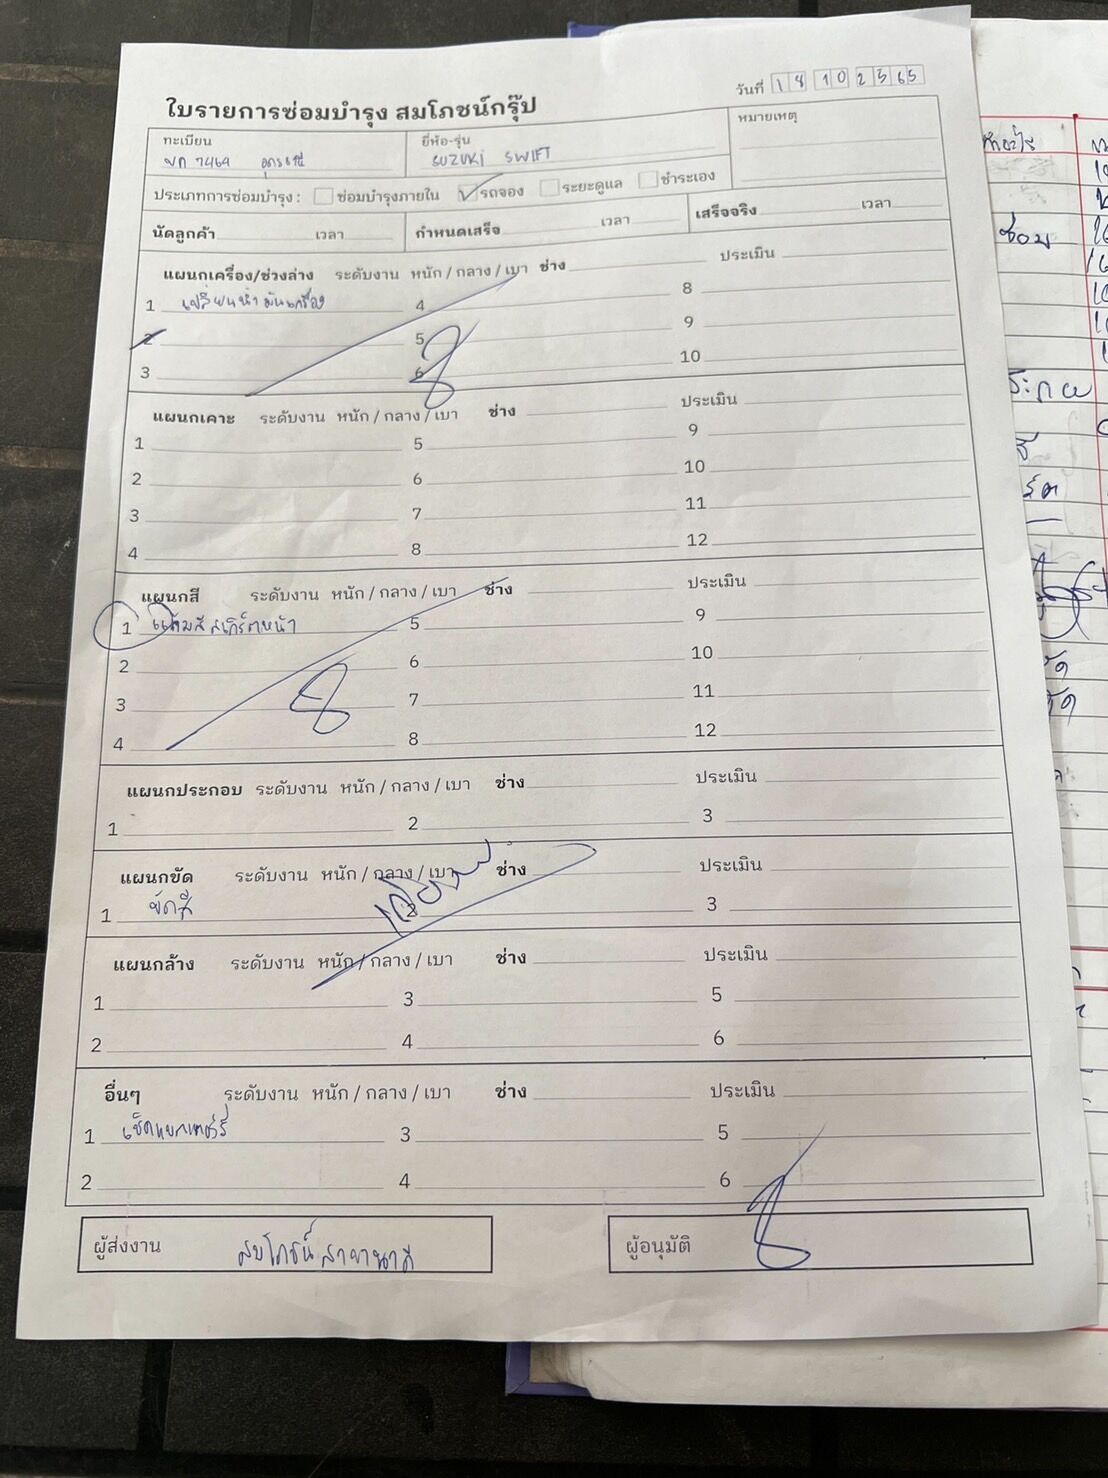 ใบรายการซ่อมบำรุง สมโภชน์กรุ๊ป
วันที่ 18 10 2565
ทะเบียน
ยี่ห้อ-รุ่น
หมายเหตุ
7469 อุดรธานี
SUZUKI SWIFT
ประเภทการซ่อมบำรุง : ซ่อมบำรุงภายใน รถจอง ระยะดูแล ชำระเอง
นัดลูกค้า เวลา กำหนดเสร็จ เวลา เสร็จจริง เวลา
แผนกเครื่อง/ช่วงล่าง ระดับงาน หนัก / กลาง / เบา ช่าง ประเมิน
1 เปลี่ยนน้ำมันเครื่อง 4 8
2 5 9
3 6 10
แผนกเคาะ ระดับงาน หนัก / กลาง / เบา ช่าง ประเมิน
1 5 9
2 6 10
3 7 11
4 8 12
แผนกสี ระดับงาน หนัก / กลาง / เบา ช่าง ประเมิน
1 แต้มสีสเกิร์ตหน้า 5 9
2 6 10
3 7 11
4 8 12
แผนกประกอบ ระดับงาน หนัก / กลาง / เบา ช่าง ประเมิน
1 2 3
แผนกขัด ระดับงาน หนัก / กลาง / เบา ช่าง ประเมิน
1 ขัดสี 2 3
แผนกล้าง ระดับงาน หนัก / กลาง / เบา ช่าง ประเมิน
1 3 5
2 4 6
อื่นๆ ระดับงาน หนัก / กลาง / เบา ช่าง ประเมิน
1 เช็คแบตเตอรี่ 3 5
2 4 6
ผู้ส่งงาน สมโภชน์ สาขานาดี
ผู้อนุมัติ
ซ่อม